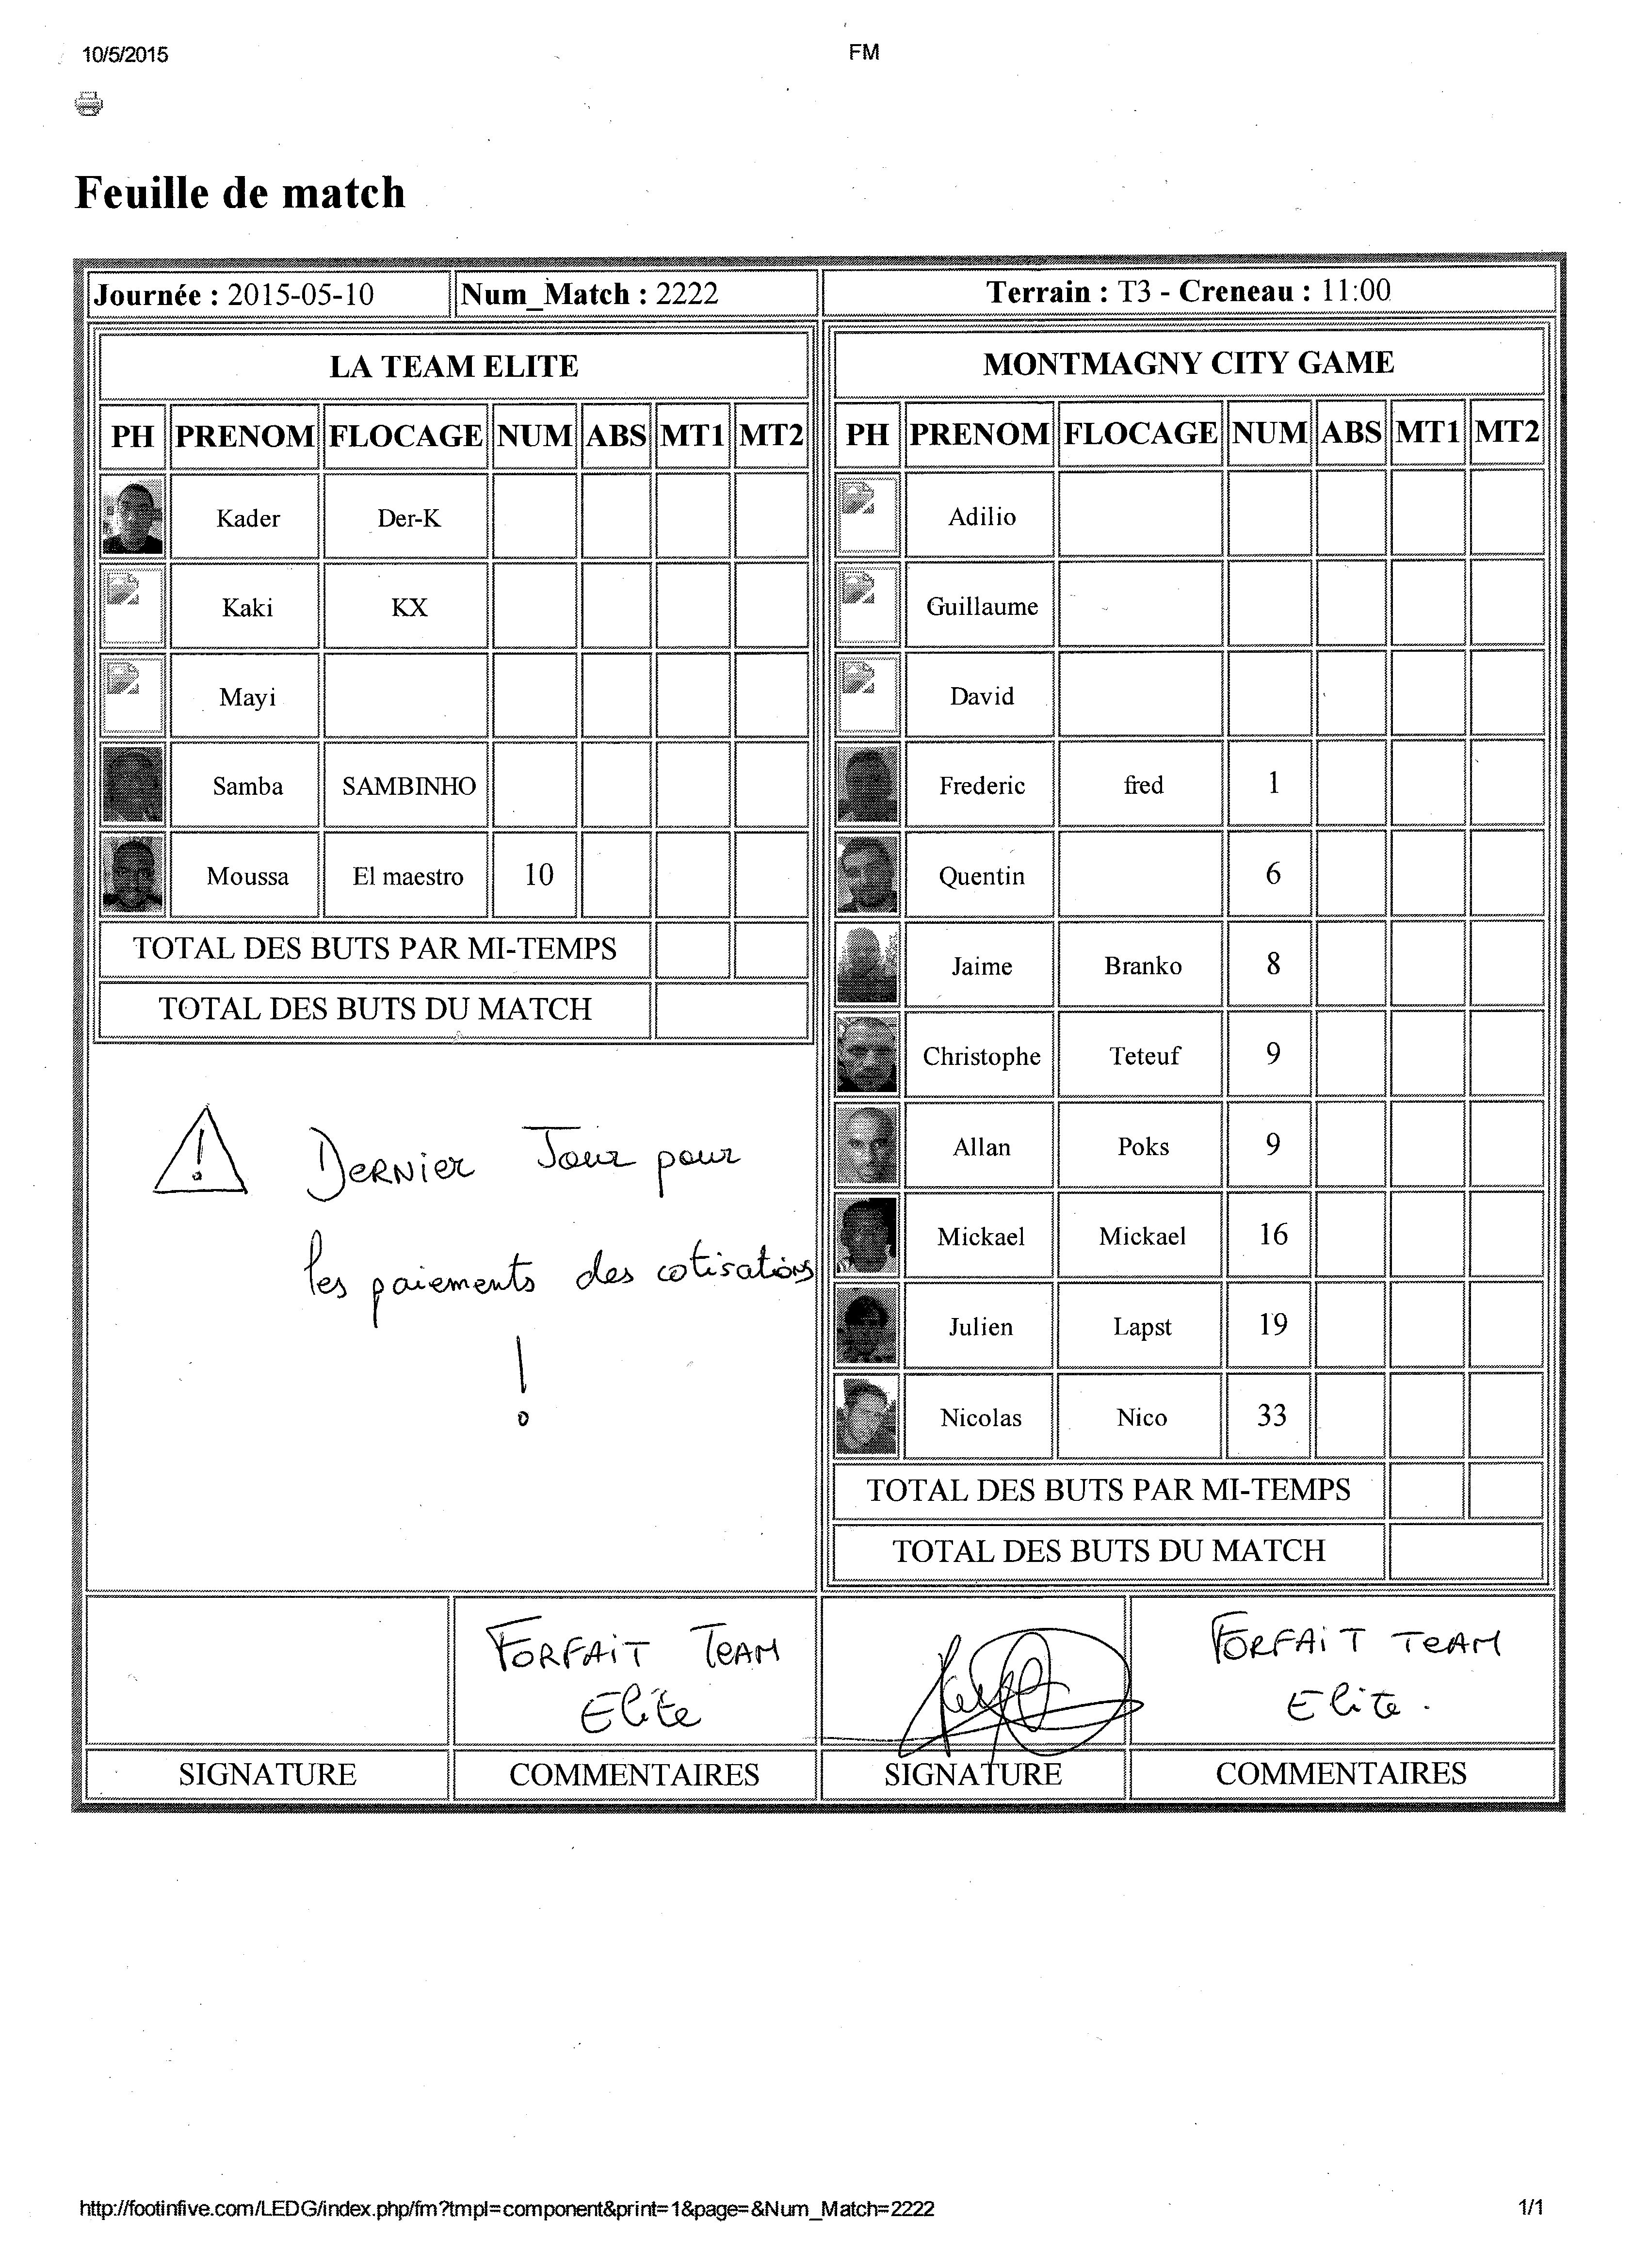 10/5/2015 FM
Feuille de match
Journée : 2015-05-10 Num_Match : 2222 Terrain : T3 - Creneau : 11:00
LA TEAM ELITE
PH PRENOM FLOCAGE NUM ABS MT1 MT2
Kader Der-K
Kaki KX
Mayi
Samba SAMBINHO
Moussa El maestro 10
TOTAL DES BUTS PAR MI-TEMPS
TOTAL DES BUTS DU MATCH
! DERNIER Jour pour
les paiements des cotisations
!
MONTMAGNY CITY GAME
PH PRENOM FLOCAGE NUM ABS MT1 MT2
Adilio
Guillaume
David
Frederic fred 1
Quentin 6
Jaime Branko 8
Christophe Teteuf 9
Allan Poks 9
Mickael Mickael 16
Julien Lapst 19
Nicolas Nico 33
TOTAL DES BUTS PAR MI-TEMPS
TOTAL DES BUTS DU MATCH
FORFAIT TEAM
Elite
FORFAIT TEAM
Elite .
SIGNATURE COMMENTAIRES SIGNATURE COMMENTAIRES
http://footinfive.com/LEDG/index.php/fm?tmpl=component&print=1&page=&Num_Match=2222 1/1